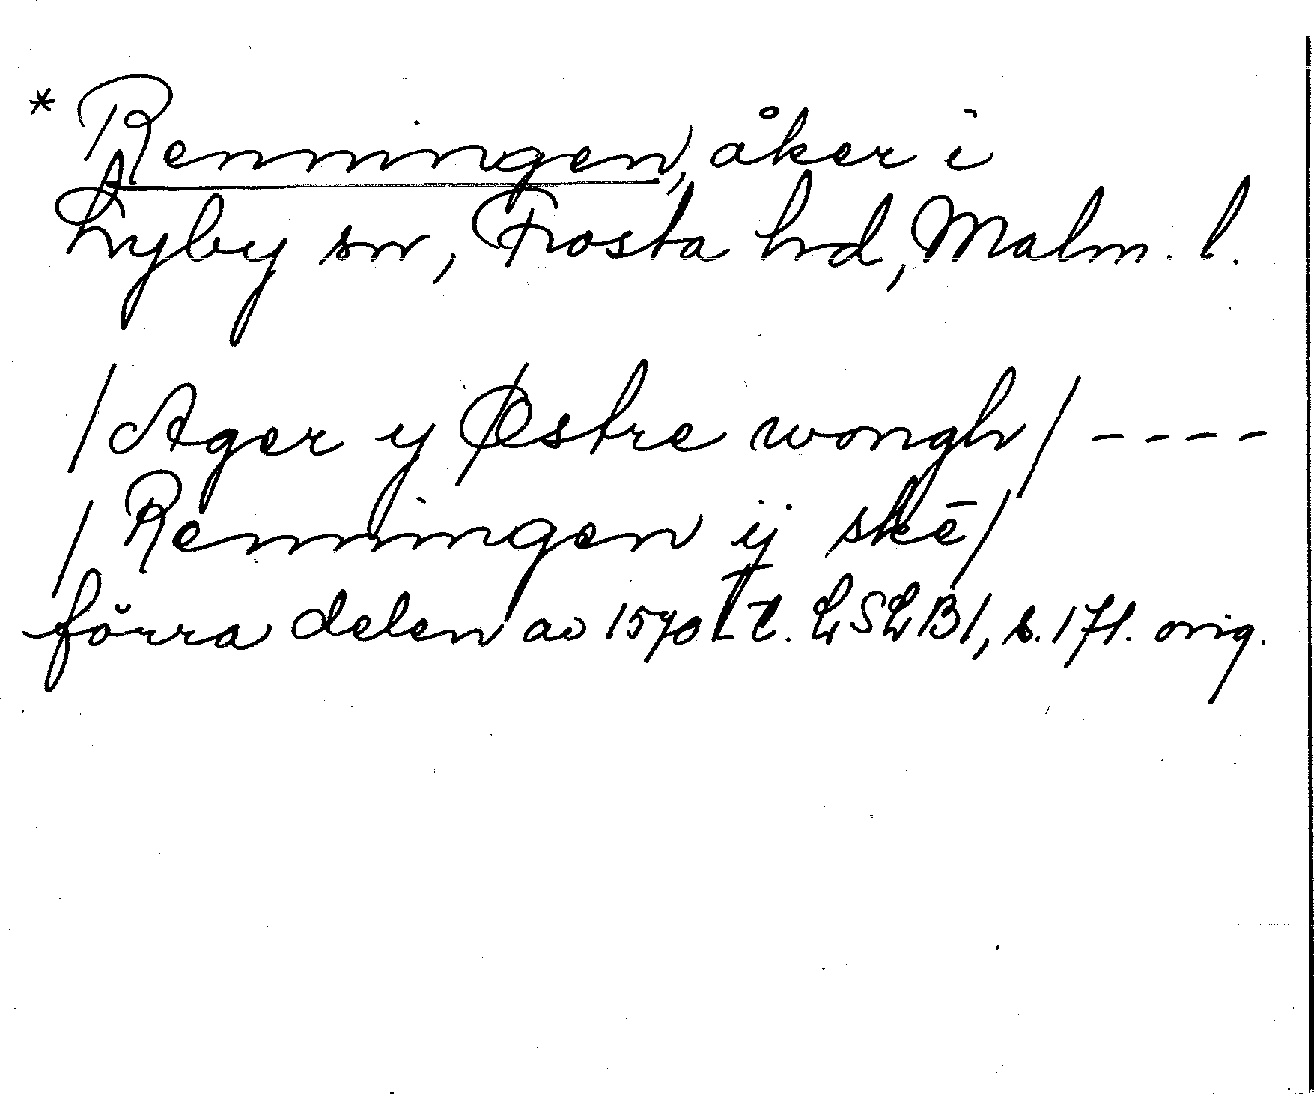 * Renningen, åker i
Lyby sn, Frosta hd, Malm. l.
/Ager y Østre wongh/ ----
/Renningen ij skē/
förra delen av 1570-t. LSLB1, s. 171. orig.